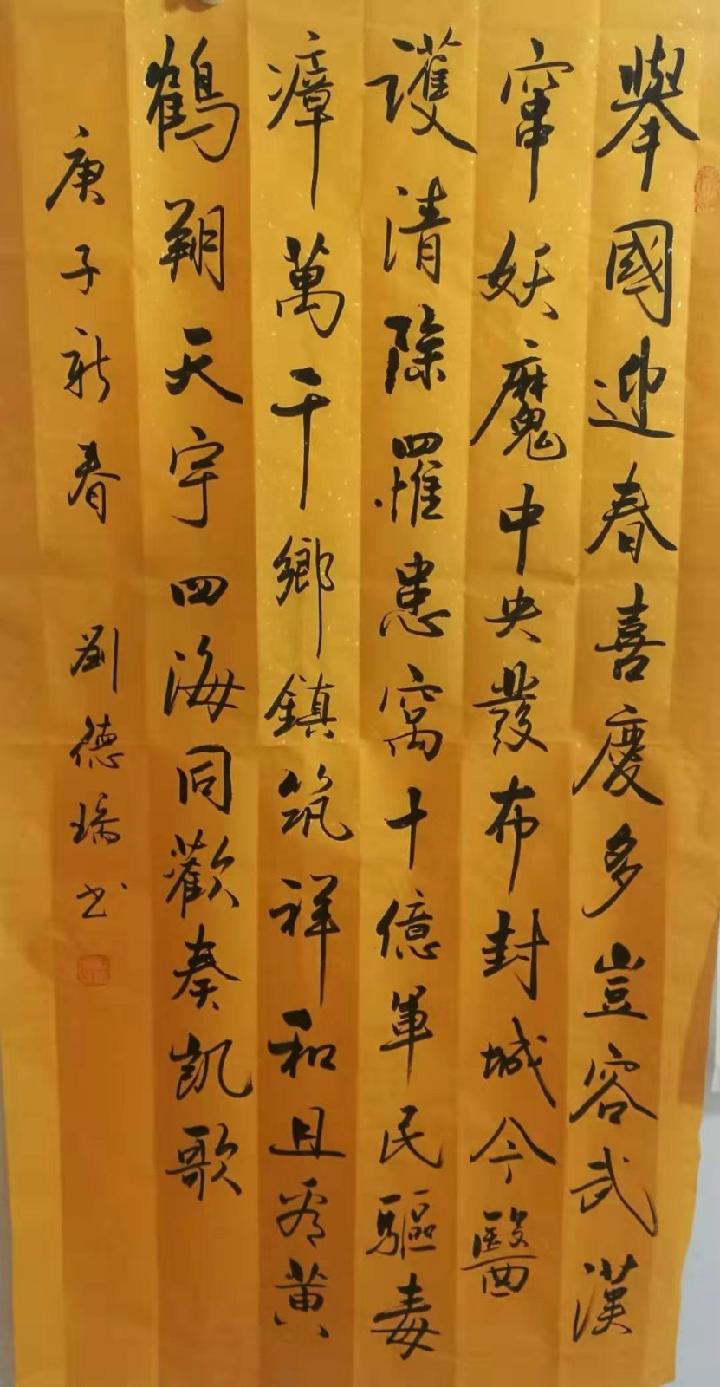 舉國迎春喜慶多豈容武漢
窜妖魔中央發布封城令醫
護清除罹患窩十億軍民驅毒
瘴萬千鄉鎮筑祥和且看黄
鶴翔天宇四海同歡奏凯歌
庚子新春 劉德瑞书